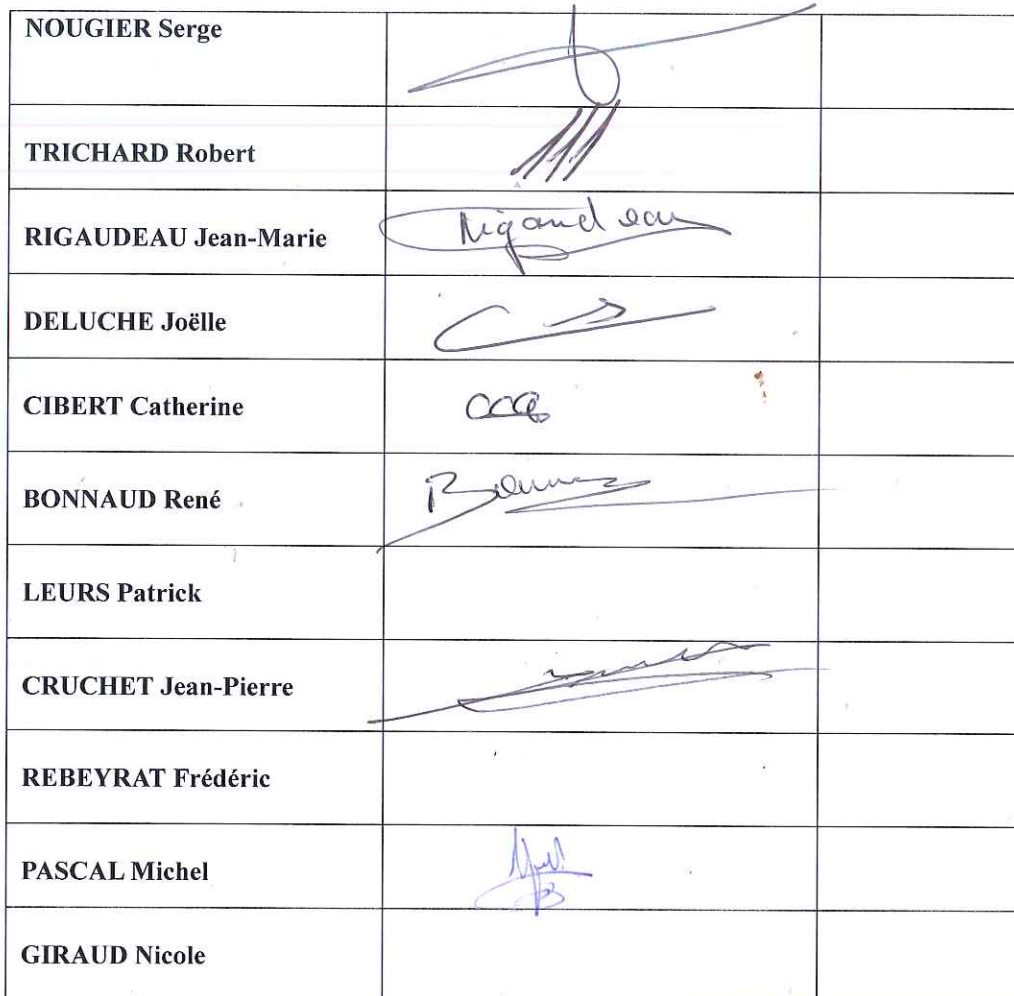 NOUGIER Serge
TRICHARD Robert
RIGAUDEAU Jean-Marie Rigaudeau
DELUCHE Joëlle
CIBERT Catherine
BONNAUD René
LEURS Patrick
CRUCHET Jean-Pierre
REBEYRAT Frédéric
PASCAL Michel
GIRAUD Nicole